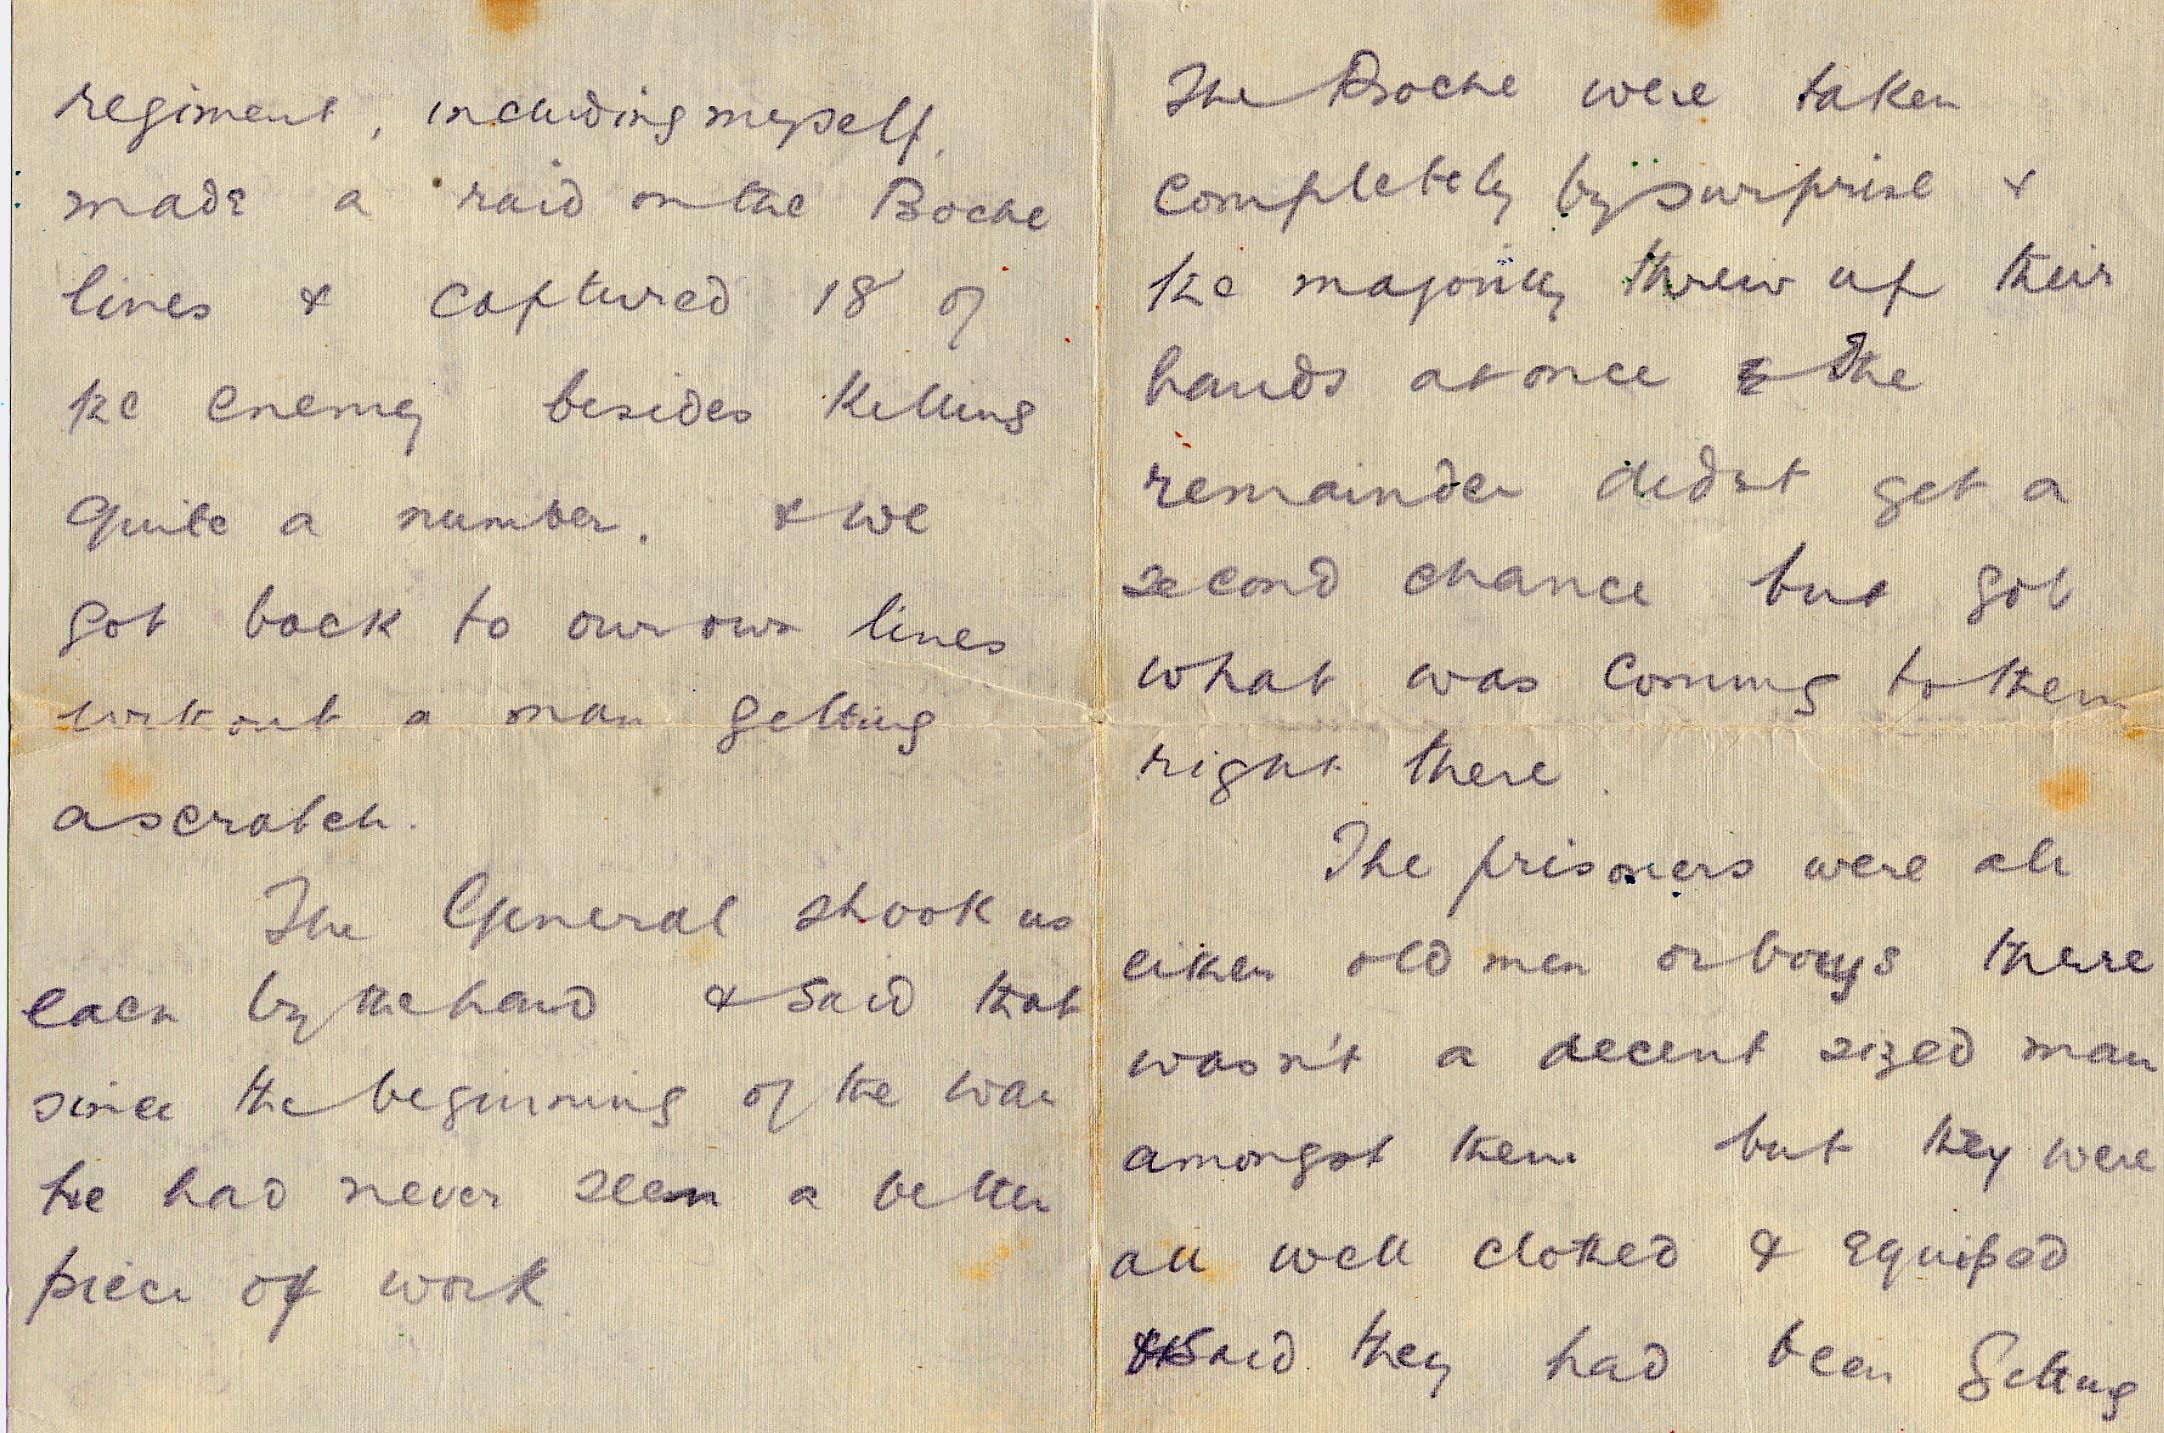 regiment, including myself,
made a raid on the Boche
lines & captured 18 of
the enemy besides killing
quite a number. & we
got back to our own lines
without a man getting
a scratch.
The General shook us
each by the hand & said that
since the beginning of the war
he had never seen a better
piece of work.
The Boche were taken
completely by surprise &
the majority threw up their
hands at once & The
remainder didnt get a
second chance but got
what was coming to them
right there.
The prisoners were all
either old men or boys there
wasn't a decent sized man
amongst them but they were
all well clothed & equiped
& said they had been getting